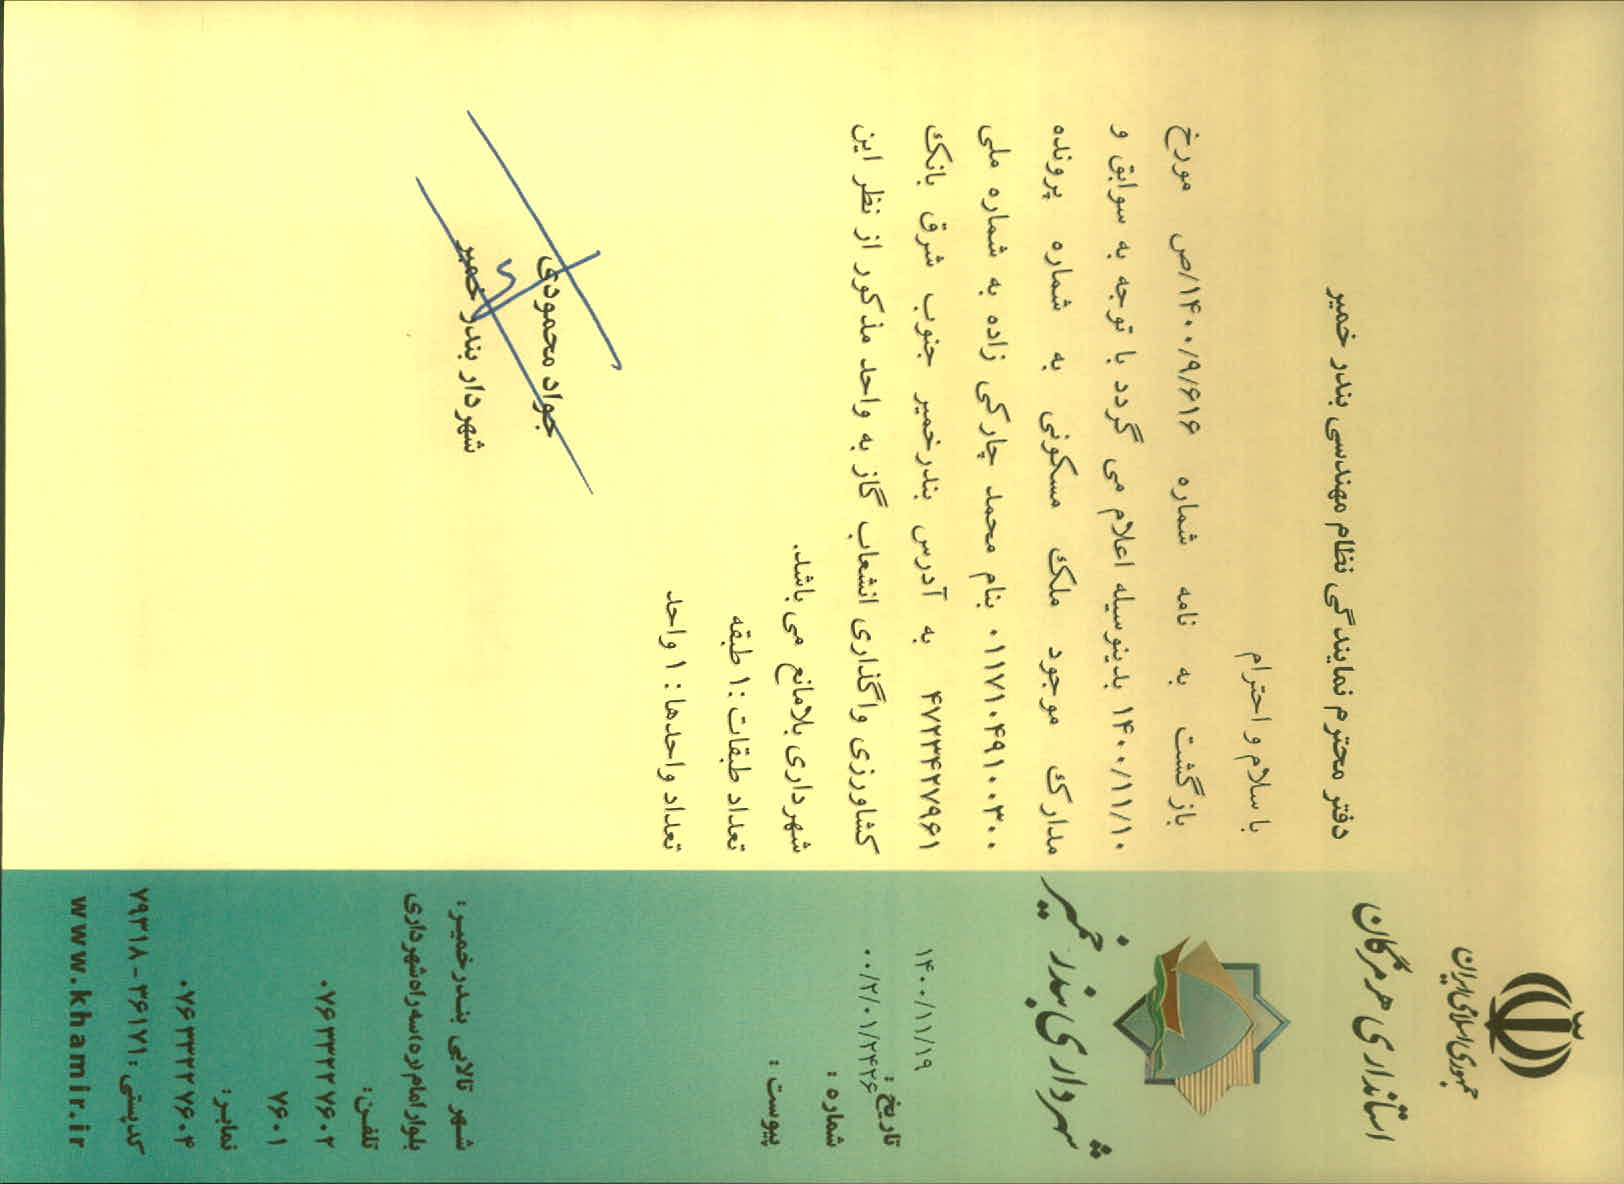 جمهوری اسلامی ایران
استانداری هرمزگان
شهرداری بندر خمیر
۱۴۰۰/۱۱/۱۹
تاریخ :
۰۰/۲/۰۱/۲۴۲۶
شماره :
پیوست :
دفتر محترم نمایندگی نظام مهندسی بندر خمیر
با سلام و احترام
بازگشت به نامه شماره ۱۴۰۰/۹/۶۱۶/ص مورخ
۱۴۰۰/۱۱/۱۰ بدینوسیله اعلام می گردد با توجه به سوابق و
مدارک موجود ملک مسکونی به شماره پرونده
۰۱۱۷۱۰۴۹۱۰۰۳۰۰ بنام محمد چارکی زاده به شماره ملی
۴۷۲۳۴۲۷۹۶۱ به آدرس بندرخمیر جنوب شرق بانک
کشاورزی واگذاری انشعاب گاز به واحد مذکور از نظر این
شهرداری بلامانع می باشد.
تعداد طبقات :۱ طبقه
تعداد واحدها : ۱ واحد
جواد محمودی
شهردار بندر خمیر
شهر تالابی بندرخمیر:
بلوار امام (ره) سه راه شهرداری
تلفن:
۰۷۶۳۳۲۲۷۶۰۲
۷۶۰۱
نمابر:
۰۷۶۳۳۲۲۷۶۰۴
کدپستی : ۳۶۱۷۱-۷۹۳۱۸
www.khamir.ir